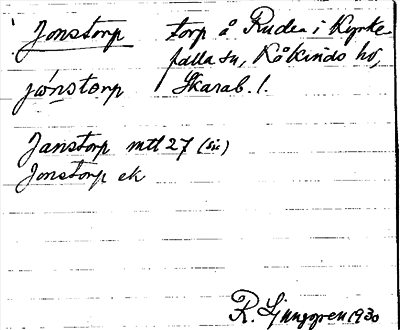 Jonstorp torp å Ruder i Kyrke-
falla sn, Kåkinds hd,
jónstorp Skarab. l.
Janstorp mtl 27 (sic)
Jonstorp ek
R. Ljunggren 1930